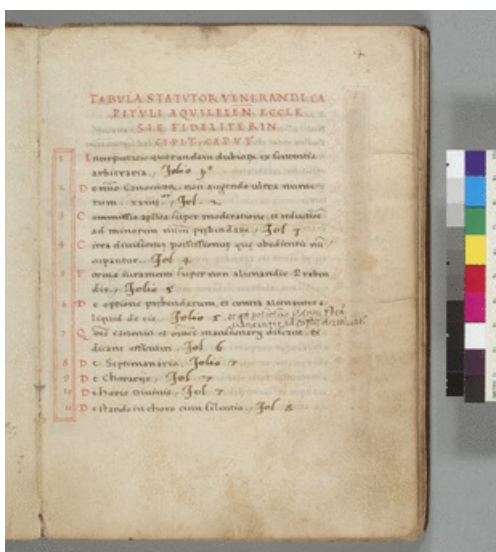 TABULA STATUTOR VENERANDI CA
PITULI AQUILEIEN. ECCLE
SIE FIDELITER IN
CIPIT. CAPUT
1 Interpretatio quorundam dubiorum ex sententia
arbitraria. Folio
2 De numero Canonicorum non augendo ultra nume
rum. xxiiii. Fol. 2
3 Commissio aplica super moderatione, et reductione
ad minorem prebendarum. Fol 3
4 Circa divisionem possessionum que obedientie
cupantur. Fol 4
5 Forma iuramenti super non alienandis Preben
dis. Folio 5
6 De optione prebendarum, et contra alienantes a
liquid de eis. Folio 5
7 canonici et omnes mansionarij dicant, et
dicant officium. Fol 6
8 De Septimanario. Folio 7
9 De Choracijs. Fol 7
10 De choris Divinis. Fol 7
11 De stando in choro cum silentio. Fol 8